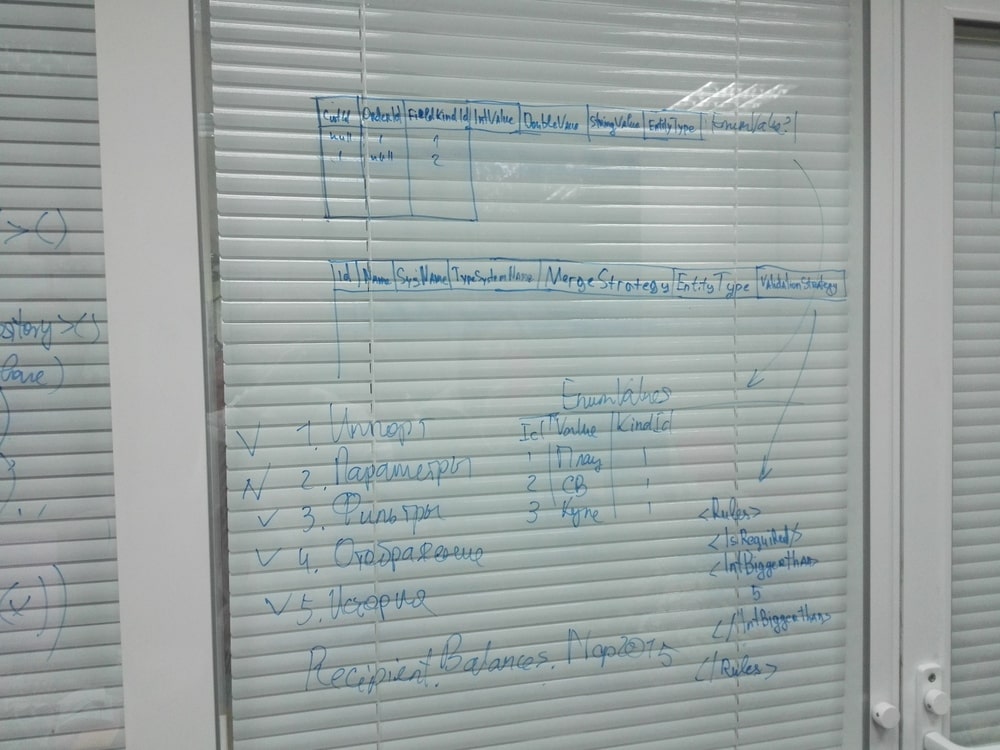 CustId OrderId FieldKindId IntValue DoubleValue StringValue EntityType EnumValue?
null 1 1
1 null 2
Id Name SysName TypeSystemName MergeStrategy EntityType ValidationStrategy
EnumValues
Id Value KindId
1 Плац 1
2 СВ 1
3 Купе 1
V 1. Импорт
V 2. Параметры
V 3. Фильтры
V 4. Отображение
V 5. История
<Rules>
<IsRequired/>
<IntBiggerthan>
5
</IntBiggerthan>
</Rules>
Recipient.Balances.Мар2015
>()
sitory>()